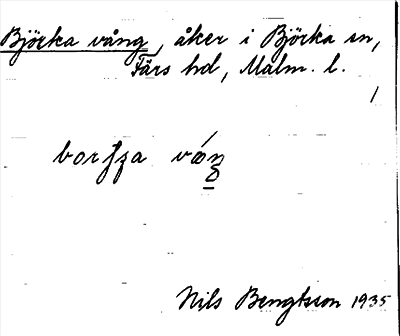 Björka vång, åker i Björka sn,
Färs hd, Malm. l.
1
Nils Bengtsson 1935